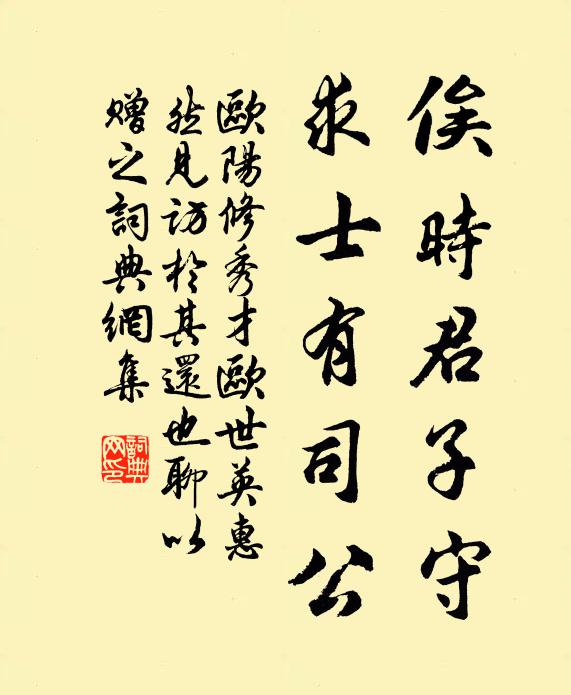 俟時君子守
求士有司公
歐陽修秀才歐世英惠
然見訪於其還也聊以
贈之詞典網集
詞典网印